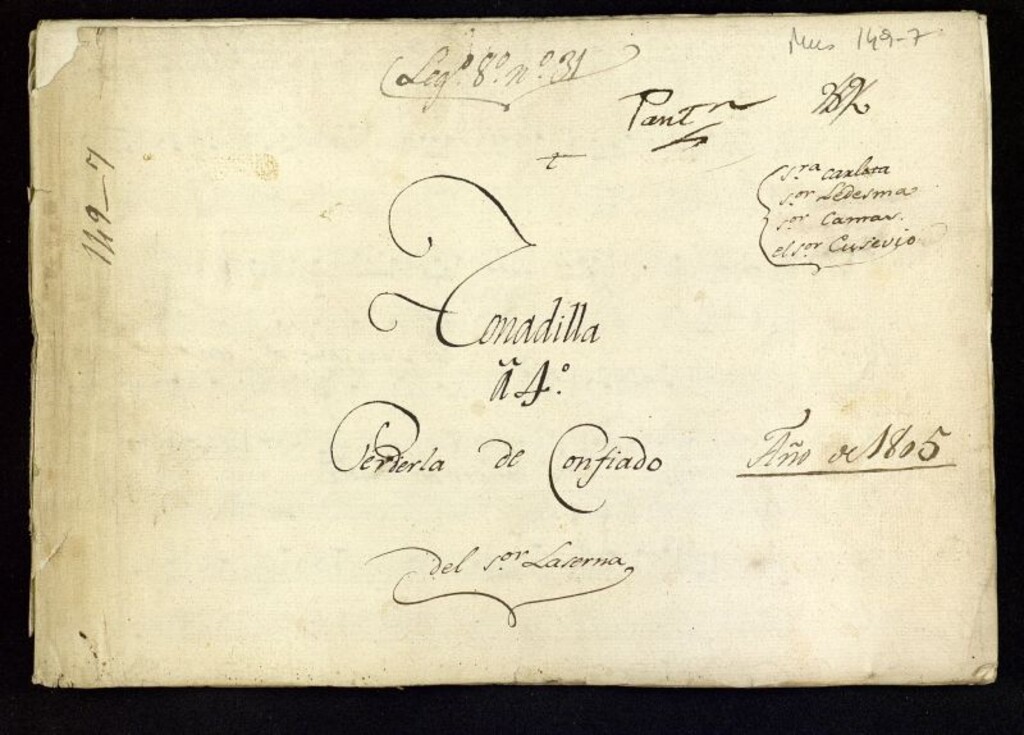 Mus 149-7
Leg.º 8.º n.º 31
149-7
t
Sra Carlota
Sor Ledesma
Sor Camas.
el Sor Eusevio
Tonadilla
â 4.º
Perderla de Confiado
Año de 1805
del Sor Laserna